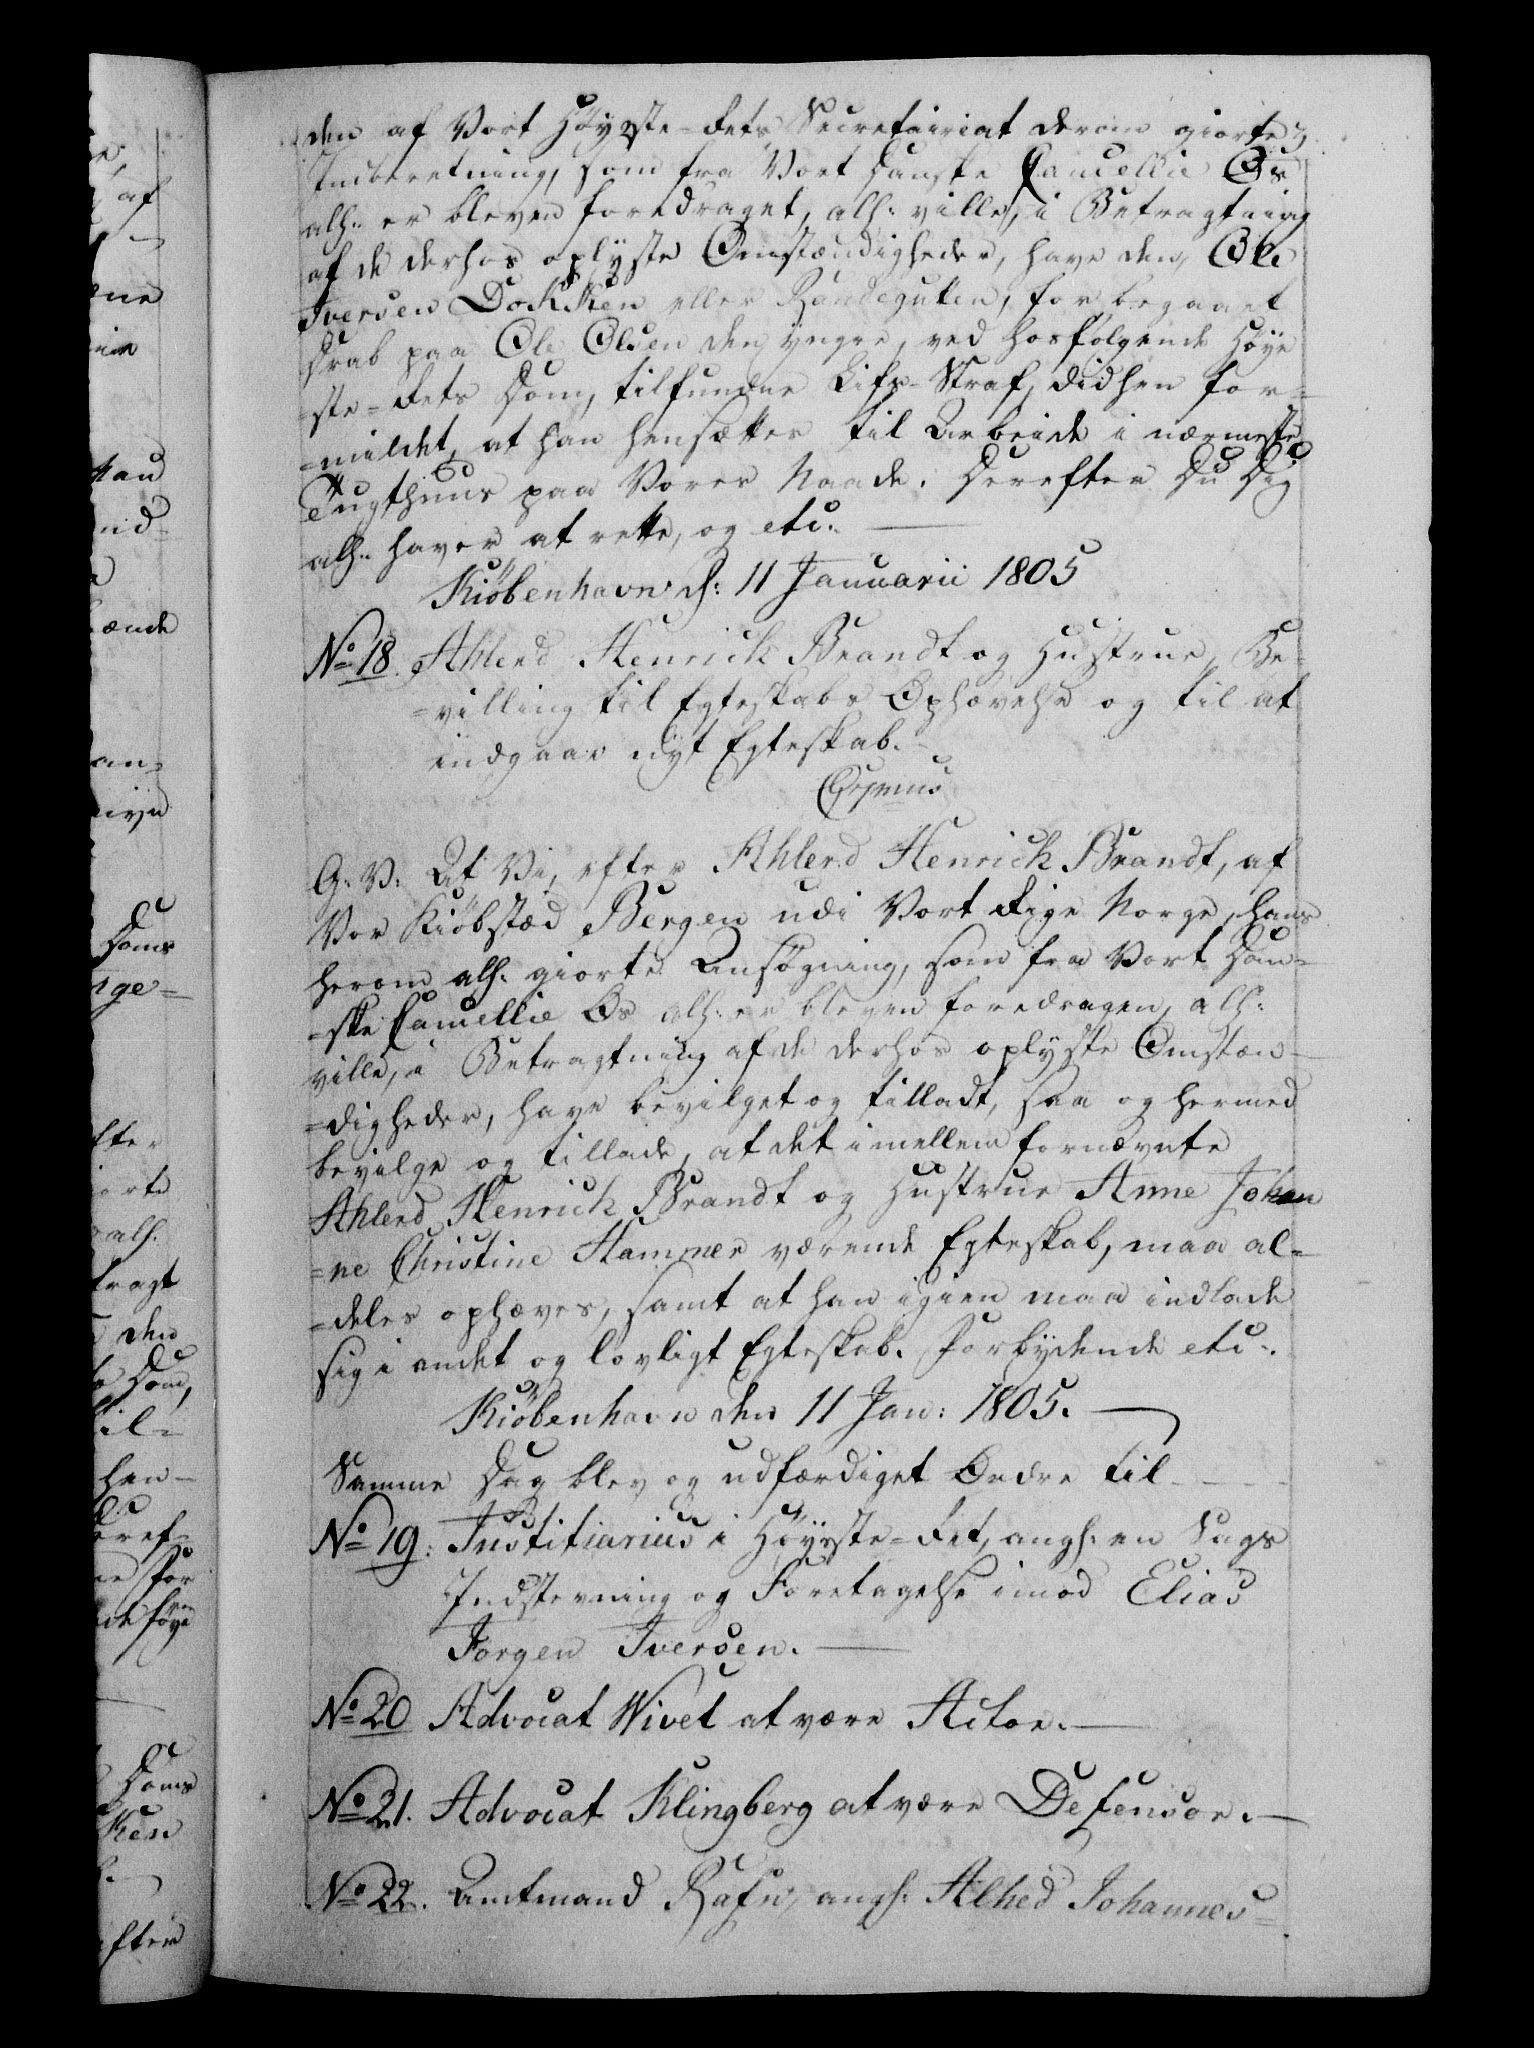 den af Vort Høyeste-Rets Secretairiat derom giorte
Indberetning, som fra Vort Danske Cancellie Os
allh: er bleven foredraget, allh: ville, i Betragtning
af de derhos oplyste Omstændigheder, have den, Ole
Iversen Dokken eller Randeguten, for begaaet
Drab paa Ole Olsen den yngre, ved hosfølgende Høye
=ste=Rets Dom, tilfundne Lifs-Straf, didhen for=
=mildet, at han hensættes til Arbeide i nærmeste
Tugthuus paa Vores Naade. Derefter Du Dig
allh: haver at rette, og etc:
Kiöbenhavn d: 11 Januarii 1805
No 18. Ahlerd Henrick Brandt og Hustrue, Be=
=villing til Egteskabs Ophævelse og til at
indgaae nyt Egteskab.
G: V: At Vi, efter Ahlerd Henrich Brandt, af
Vor Kiöbstæd Bergen udi Vort Rige Norge, hans
herom allh: giorte Ansøgning, som fra Vort Dan=
=ske Cancellie Os allh: er bleven foredragen, allh:
ville, i Betragtning af de derhos oplyste Omstæn=
=digheder, have bevilget og tilladt, saa og hermed
bevilge og tillade, at det imellem fornævnte
Ahlerd Henrich Brandt og Hustrue Anne Johan
=ne Christine Hammer værende Egteskab, maa al=
=deles ophæves, samt at han igien maa indlade
sig i andet og lovligt Egteskab. Forbydende etc:.
Kiöbenhavn den 11 Jan: 1805.
Samme Dag blev og udfærdiget Ordre til
No 19: Justitiarius i Høyeste=Ret, angl: en Sags
Indstevning og Foretagelse imod Elias
Jorgen Iversen.
No 20 Advocat Wivet at være Actor.
No 21. Advocat Klingberg at være Defensor.
No 22. Amtmand Rafn, angl: Alhed Johannes=